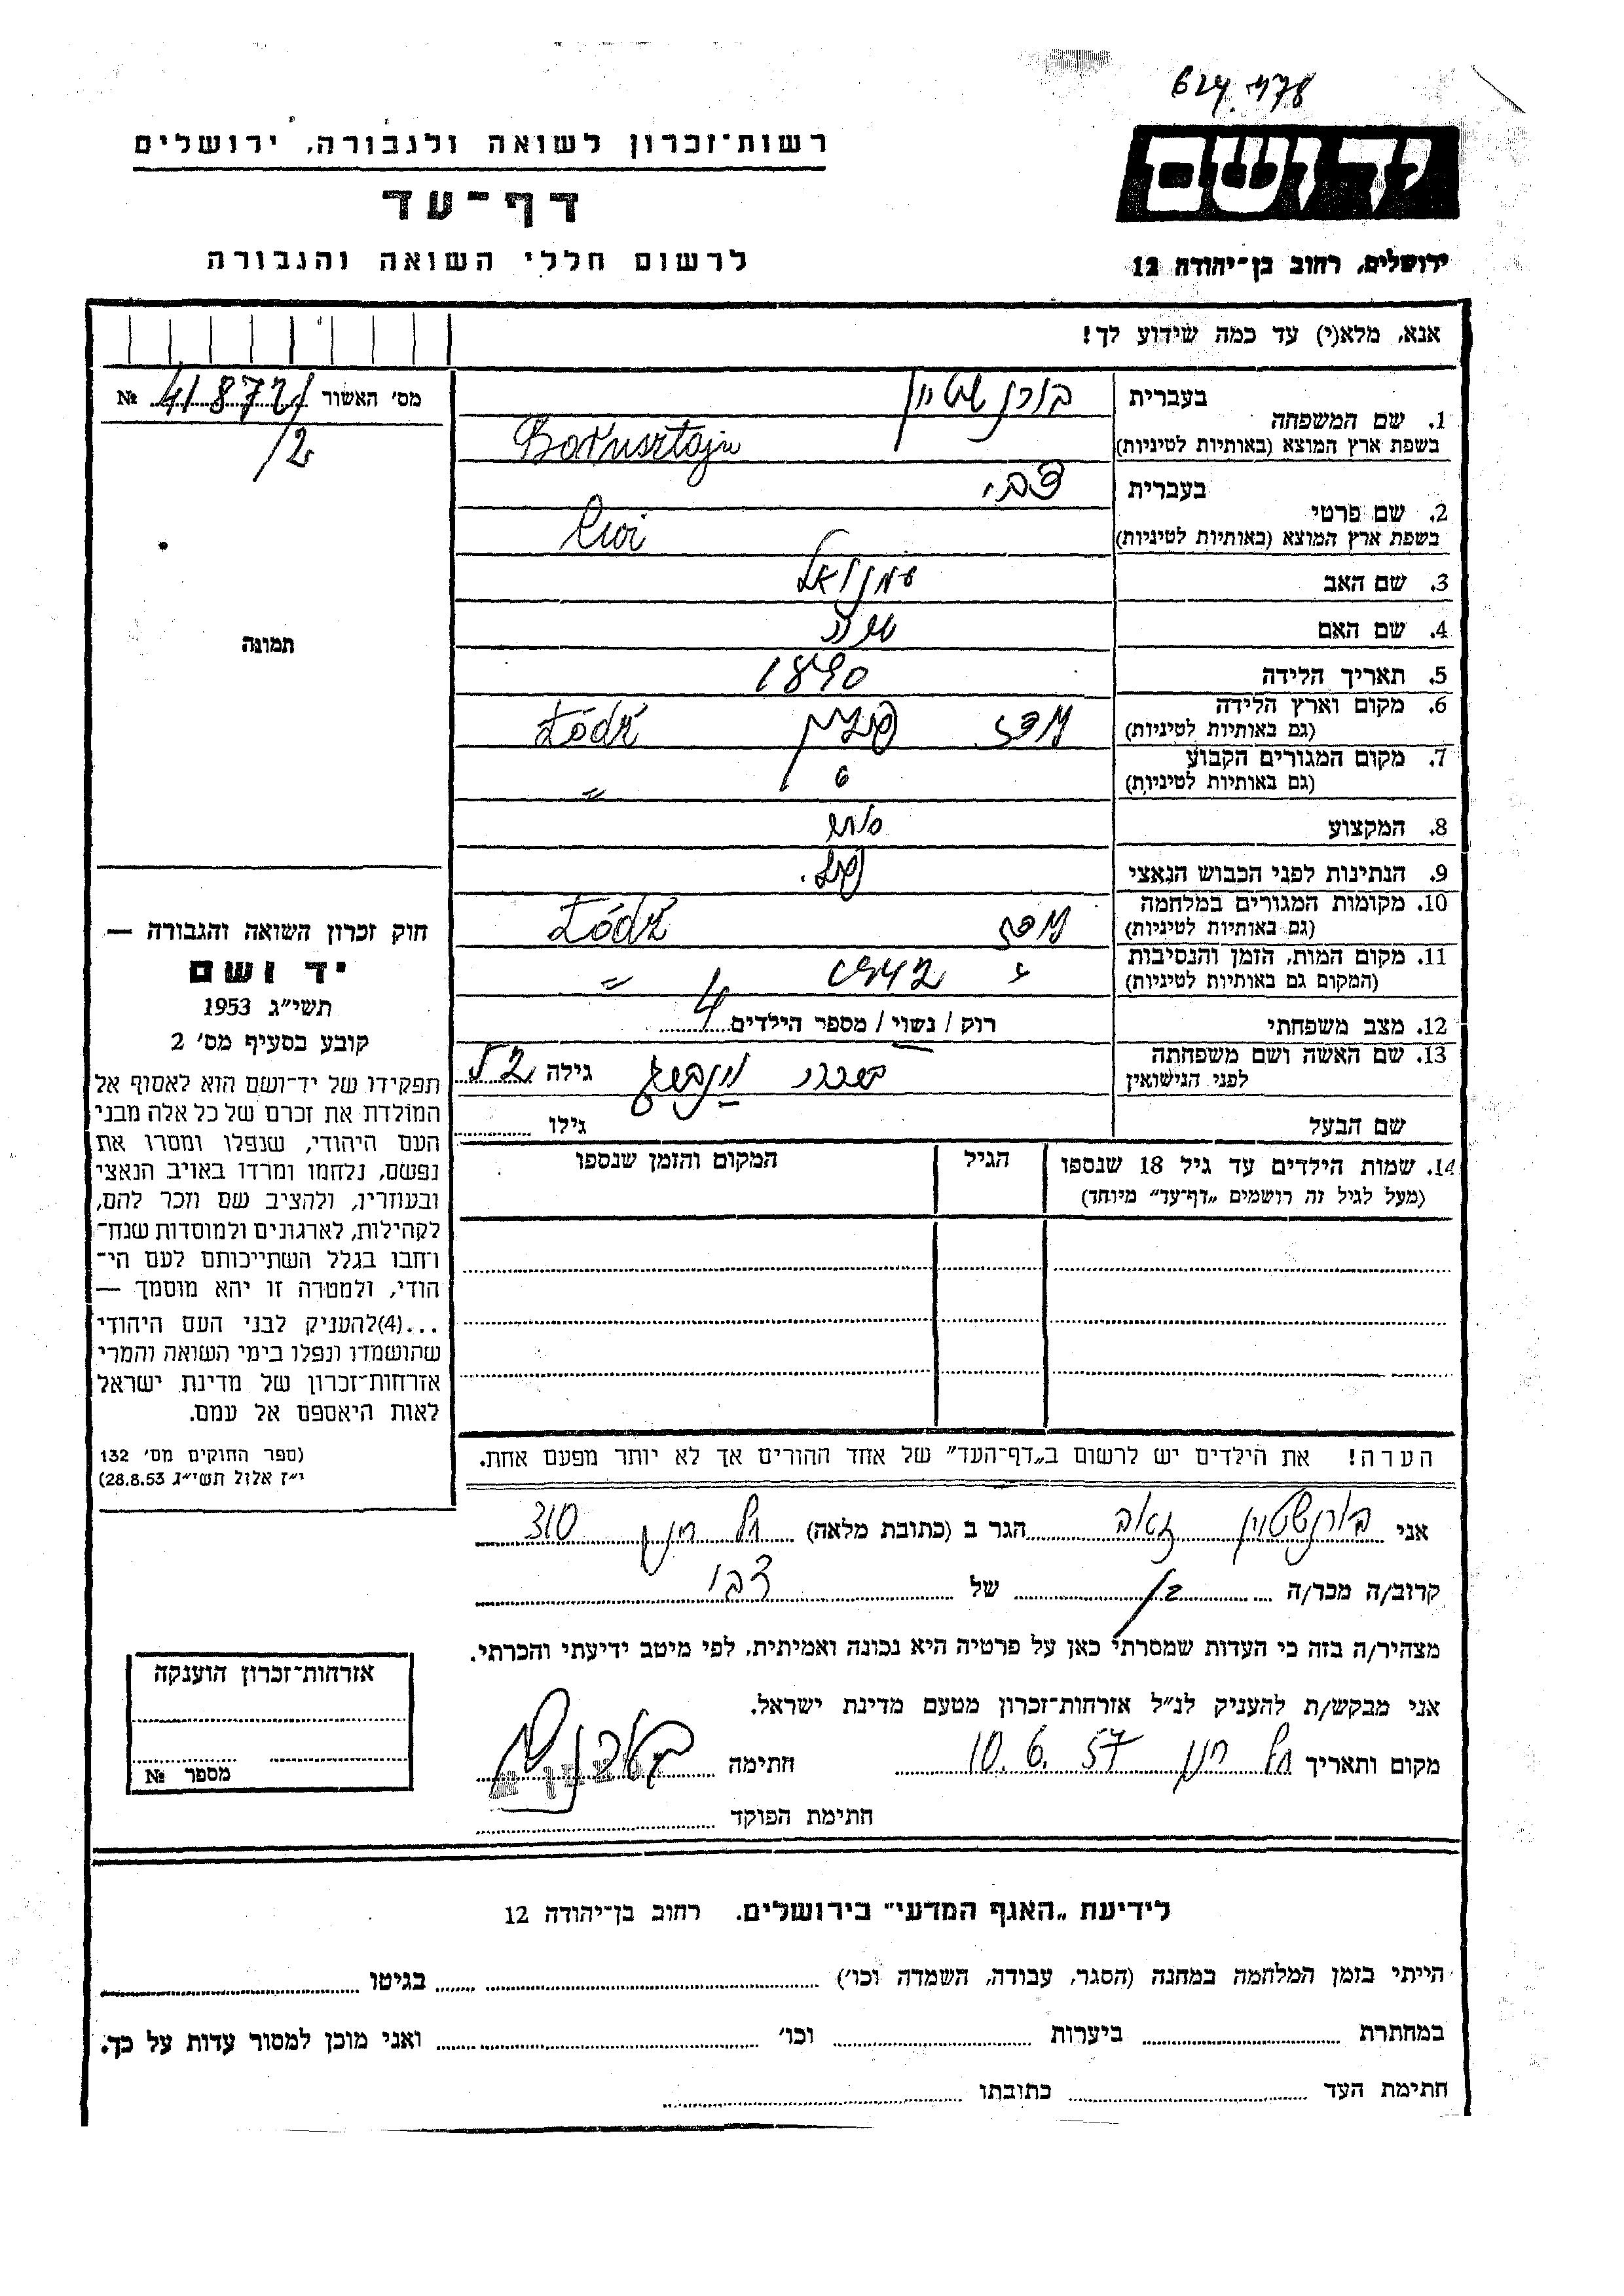 624 478
רשות־זכרון לשואה ולגבורה, ירושלים
יד ושם
דף־עד
לרשום חללי השואה והגבורה
ירושלים, רחוב בן־יהודה 12
אנא, מלא(י) עד כמה שידוע לך!
מס׳ האשור 41872/ №
/2
תמונה
1. שם המשפחה
בעברית בורנשטיין
בשפת ארץ המוצא (באותיות לטיניות) Bornsztajn
2. שם פרטי
בעברית צבי
בשפת ארץ המוצא (באותיות לטיניות) Cwi
3. שם האב עמנואל
4. שם האם
5. תאריך הלידה 1890
6. מקום וארץ הלידה
(גם באותיות לטיניות) לודז פולין Łódź
7. מקום המגורים הקבוע
(גם באותיות לטיניות) "
8. המקצוע סוחר
9. הנתינות לפני הכבוש הנאצי פול.
10. מקומות המגורים במלחמה
(גם באותיות לטיניות) לודז Łódź
11. מקום המות, הזמן והנסיבות
(המקום גם באותיות לטיניות) 1942 "
12. מצב משפחתי רוק / נשוי / מספר הילדים 4
13. שם האשה ושם משפחתה
לפני הנישואין גילה 52
שם הבעל גילו
14. שמות הילדים עד גיל 18 שנספו
(מעל לגיל זה רושמים „דף־עד״ מיוחד)
הגיל
המקום והזמן שנספו
חוק זכרון השואה והגבורה —
יד ושם
תשי״ג 1953
קובע בסעיף מס׳ 2
תפקידו של יד־ושם הוא לאסוף אל
המולדת את זכרם של כל אלה מבני
העם היהודי, שנפלו ומסרו את
נפשם, נלחמו ומרדו באויב הנאצי
ובעוזריו, ולהציב שם וזכר להם,
לקהילות, לארגונים ולמוסדות שנח־
רחבו בגלל השתייכותם לעם הי־
הודי, ולמטרה זו יהא מוסמך —
...(4)להעניק לבני העם היהודי
שהושמדו ונפלו בימי השואה והמרי
אזרחות־זכרון של מדינת ישראל
לאות היאספם אל עמם.
(ספר החוקים מס׳ 132
י״ז אלול תשי״ג 28.8.53)
הערה! את הילדים יש לרשום ב„דף־העד״ של אחד ההורים אך לא יותר מפעם אחת.
אני בורנשטוין זאב הגר ב (כתובת מלאה) תל חנן 310
קרוב/ה מכר/ה בן של צבי
מצהיר/ה בזה כי העדות שמסרתי כאן על פרטיה היא נכונה ואמיתית, לפי מיטב ידיעתי והכרתי.
אני מבקש/ת להעניק לנ״ל אזרחות־זכרון מטעם מדינת ישראל.
מקום ותאריך תל חנן 10.6.57 חתימה
חתימת הפוקד
אזרחות־זכרון הוענקה
מספר №
לידיעת „האגף המדעי״ בירושלים. רחוב בן־יהודה 12
הייתי בזמן המלחמה במחנה (הסגר, עבודה, השמדה וכו׳) בגיטו
במחתרת ביערות וכו׳ ואני מוכן למסור עדות על כך.
חתימת העד כתובתו